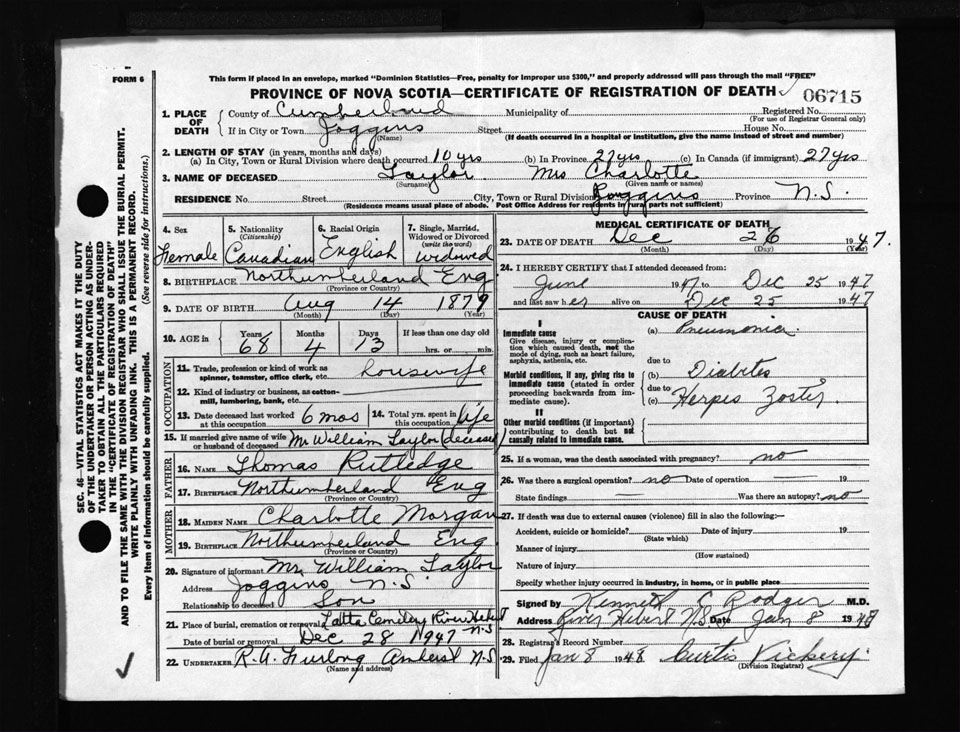 FORM 6
This form if placed in an envelope, marked "Dominion Statistics—Free, penalty for improper use $300," and properly addressed will pass through the mail "FREE"
PROVINCE OF NOVA SCOTIA—CERTIFICATE OF REGISTRATION OF DEATH
06715
1. PLACE OF DEATH
County of Cumberland Municipality of Registered No.
(For use of Registrar General only)
If in City or Town Joggins Street House No.
(Name) (If death occurred in a hospital or institution, give the name instead of street and number)
2. LENGTH OF STAY (in years, months and days)
(a) In City, Town or Rural Division where death occurred 10 yrs (b) In Province 27 yrs (c) In Canada (if immigrant) 27 yrs
3. NAME OF DECEASED Taylor Mrs Charlotte
(Surname) (Given name or names)
RESIDENCE No. Street City, Town or Rural Division Joggins Province N.S.
(Residence means usual place of abode. Post Office Address for residents in rural parts not sufficient)
4. Sex Female
5. Nationality (Citizenship) Canadian
6. Racial Origin English
7. Single, Married, Widowed or Divorced (write the word) widowed
8. BIRTHPLACE Northumberland Eng
(Province or Country)
9. DATE OF BIRTH Aug 14 1879
(Month) (Day) (Year)
10. AGE in Years 68 Months 4 Days 13 If less than one day old hrs. or min.
OCCUPATION
11. Trade, profession or kind of work as spinner, teamster, office clerk, etc. housewife
12. Kind of industry or business, as cotton-mill, lumbering, bank, etc.
13. Date deceased last worked at this occupation 6 mos
14. Total yrs. spent in this occupation life
15. If married give name of wife or husband of deceased Mr William Taylor (deceased)
FATHER
16. NAME Thomas Rutledge
17. BIRTHPLACE Northumberland Eng
(Province or Country)
MOTHER
18. MAIDEN NAME Charlotte Morgan
19. BIRTHPLACE Northumberland Eng.
(Province or Country)
20. Signature of informant Mr William Taylor
Address Joggins N.S.
Relationship to deceased Son
21. Place of burial, cremation or removal Cemetery River Hebert N.S
Date of burial or removal Dec 28 1947
22. UNDERTAKER R.A. Furlong Amherst N.S
(Name and address)
MEDICAL CERTIFICATE OF DEATH
23. DATE OF DEATH Dec 26 1947.
(Month) (Day) (Year)
24. I HEREBY CERTIFY that I attended deceased from:
June 1947 to Dec 25 1947
and last saw her alive on Dec 25 1947
CAUSE OF DEATH
I
Immediate cause
Give disease, injury or complication which caused death, not the mode of dying, such as heart failure, asphyxia, asthenia, etc.
(a) Pneumonia
due to
Morbid conditions, if any, giving rise to immediate cause (stated in order proceeding backwards from immediate cause).
(b) Diabetes
due to
(c) Herpes Zoster
II
Other morbid conditions (if important) contributing to death but not causally related to immediate cause.
25. If a woman, was the death associated with pregnancy? no
26. Was there a surgical operation? no Date of operation — 19
State findings — Was there an autopsy? no
27. If death was due to external causes (violence) fill in also the following:—
Accident, suicide or homicide? Date of injury 19
(State which)
Manner of injury
(How sustained)
Nature of injury
Specify whether injury occurred in industry, in home, or in public place
Signed by Kenneth C Rodger M.D.
Address River Hebert N.S Date Jan 8 1948
28. Registrar's Record Number
29. Filed Jan 8 1948 Curtis Vickery.
(Division Registrar)
SEC. 46—VITAL STATISTICS ACT MAKES IT THE DUTY
OF THE UNDERTAKER OR PERSON ACTING AS UNDER-
TAKER TO OBTAIN ALL THE PARTICULARS REQUIRED
IN THE "CERTIFICATE OF REGISTRATION OF DEATH"
AND TO FILE THE SAME WITH THE DIVISION REGISTRAR WHO SHALL ISSUE THE BURIAL PERMIT.
WRITE PLAINLY WITH UNFADING INK. THIS IS A PERMANENT RECORD.
Every item of information should be carefully supplied. (See reverse side for instructions.)